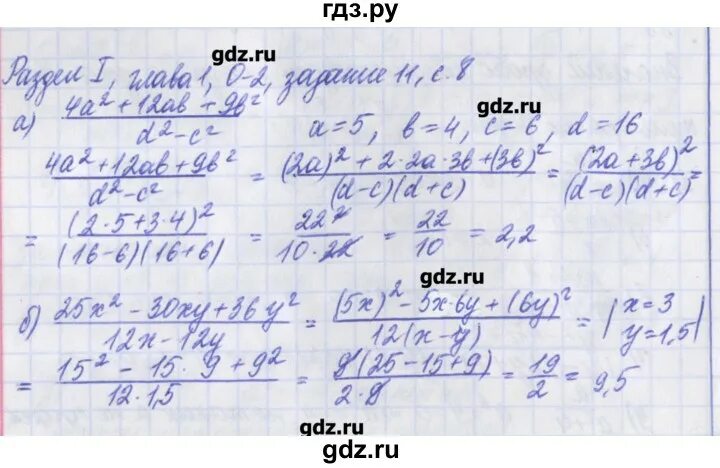 гдз.ру
gdz.ru
Раздел I, глава 1, О-2, задание 11, с. 8
gdz.ru
а) (4a² + 12ab + 9b²)/(d² − c²) a = 5, b = 4, c = 6, d = 16
(4a² + 12ab + 9b²)/(d² − c²) = ((2a)² + 2·2a·3b + (3b)²)/((d−c)(d+c)) = (2a+3b)²/((d−c)(d+c)) =
= (2·5+3·4)²/((16−6)(16+6)) = 22²/(10·22) = 22/10 = 2,2
gdz.ru
gdz.ru
б) (25x² − 30xy + 36y²)/(12x − 12y) = ((5x)² − 5x·6y + (6y)²)/(12(x−y)) = | x=3 y=1,5 |
= (15² − 15·9 + 9²)/(12·1,5) = 9(25−15+9)/(2·9) = 19/2 = 9,5
gdz.ru
gdz.ru